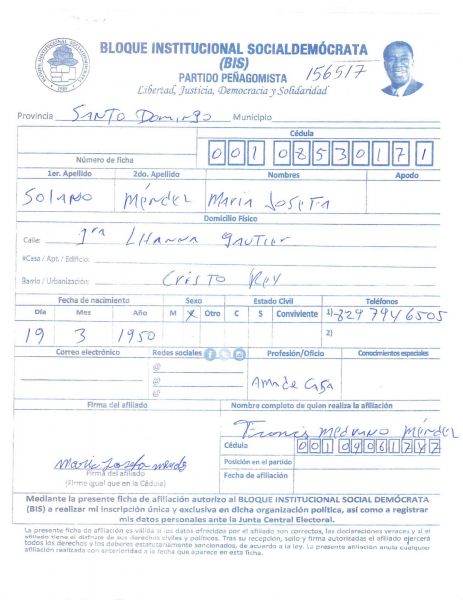 BLOQUE INSTITUCIONAL SOCIALDEMÓCRATA
(BIS)
PARTIDO PEÑAGOMISTA
156517
Libertad, Justicia, Democracia y Solidaridad
Provincia Santo Domingo Municipio
Cédula
Número de ficha 001 0853017 1
1er. Apellido 2do. Apellido Nombres Apodo
Solano Méndez Maria Josefa
Domicilio Físico
Calle: 1ra LHanna gautier
#Casa / Apt. / Edificio:
Barrio / Urbanización: Cristo Rey
Fecha de nacimiento Sexo Estado Civil Teléfonos
Día Mes Año M X Otro C S Conviviente 1)-829 794 6505
19 3 1950 2)
Correo electrónico Redes sociales Profesión/Oficio Conocimientos especiales
@
@
@
Ama de Casa
Firma del afiliado Nombre completo de quien realiza la afiliación
Medrano Méndez
Cédula
Posición en el partido
Firma del afiliado
(Firme igual que en la Cédula)
Fecha de afiliación
Mediante la presente ficha de afiliación autorizo al BLOQUE INSTITUCIONAL SOCIAL DEMÓCRATA
(BIS) a realizar mi inscripción única y exclusiva en dicha organización política, así como a registrar
mis datos personales ante la Junta Central Electoral.
La presente ficha de afiliación es válida si los datos ofrecidos por el afiliado son correctos, las declaraciones veraces y si el
afiliado tiene el disfrute de sus derechos civiles y políticos. Tras su recepción, sello y firma autorizados el afiliado ejercerá
todos los derechos y los deberes estatutariamente sancionados, de acuerdo a la ley. La presente afiliación anula cualquier
afiliación realizada con anterioridad a la fecha que aparece en esta ficha.